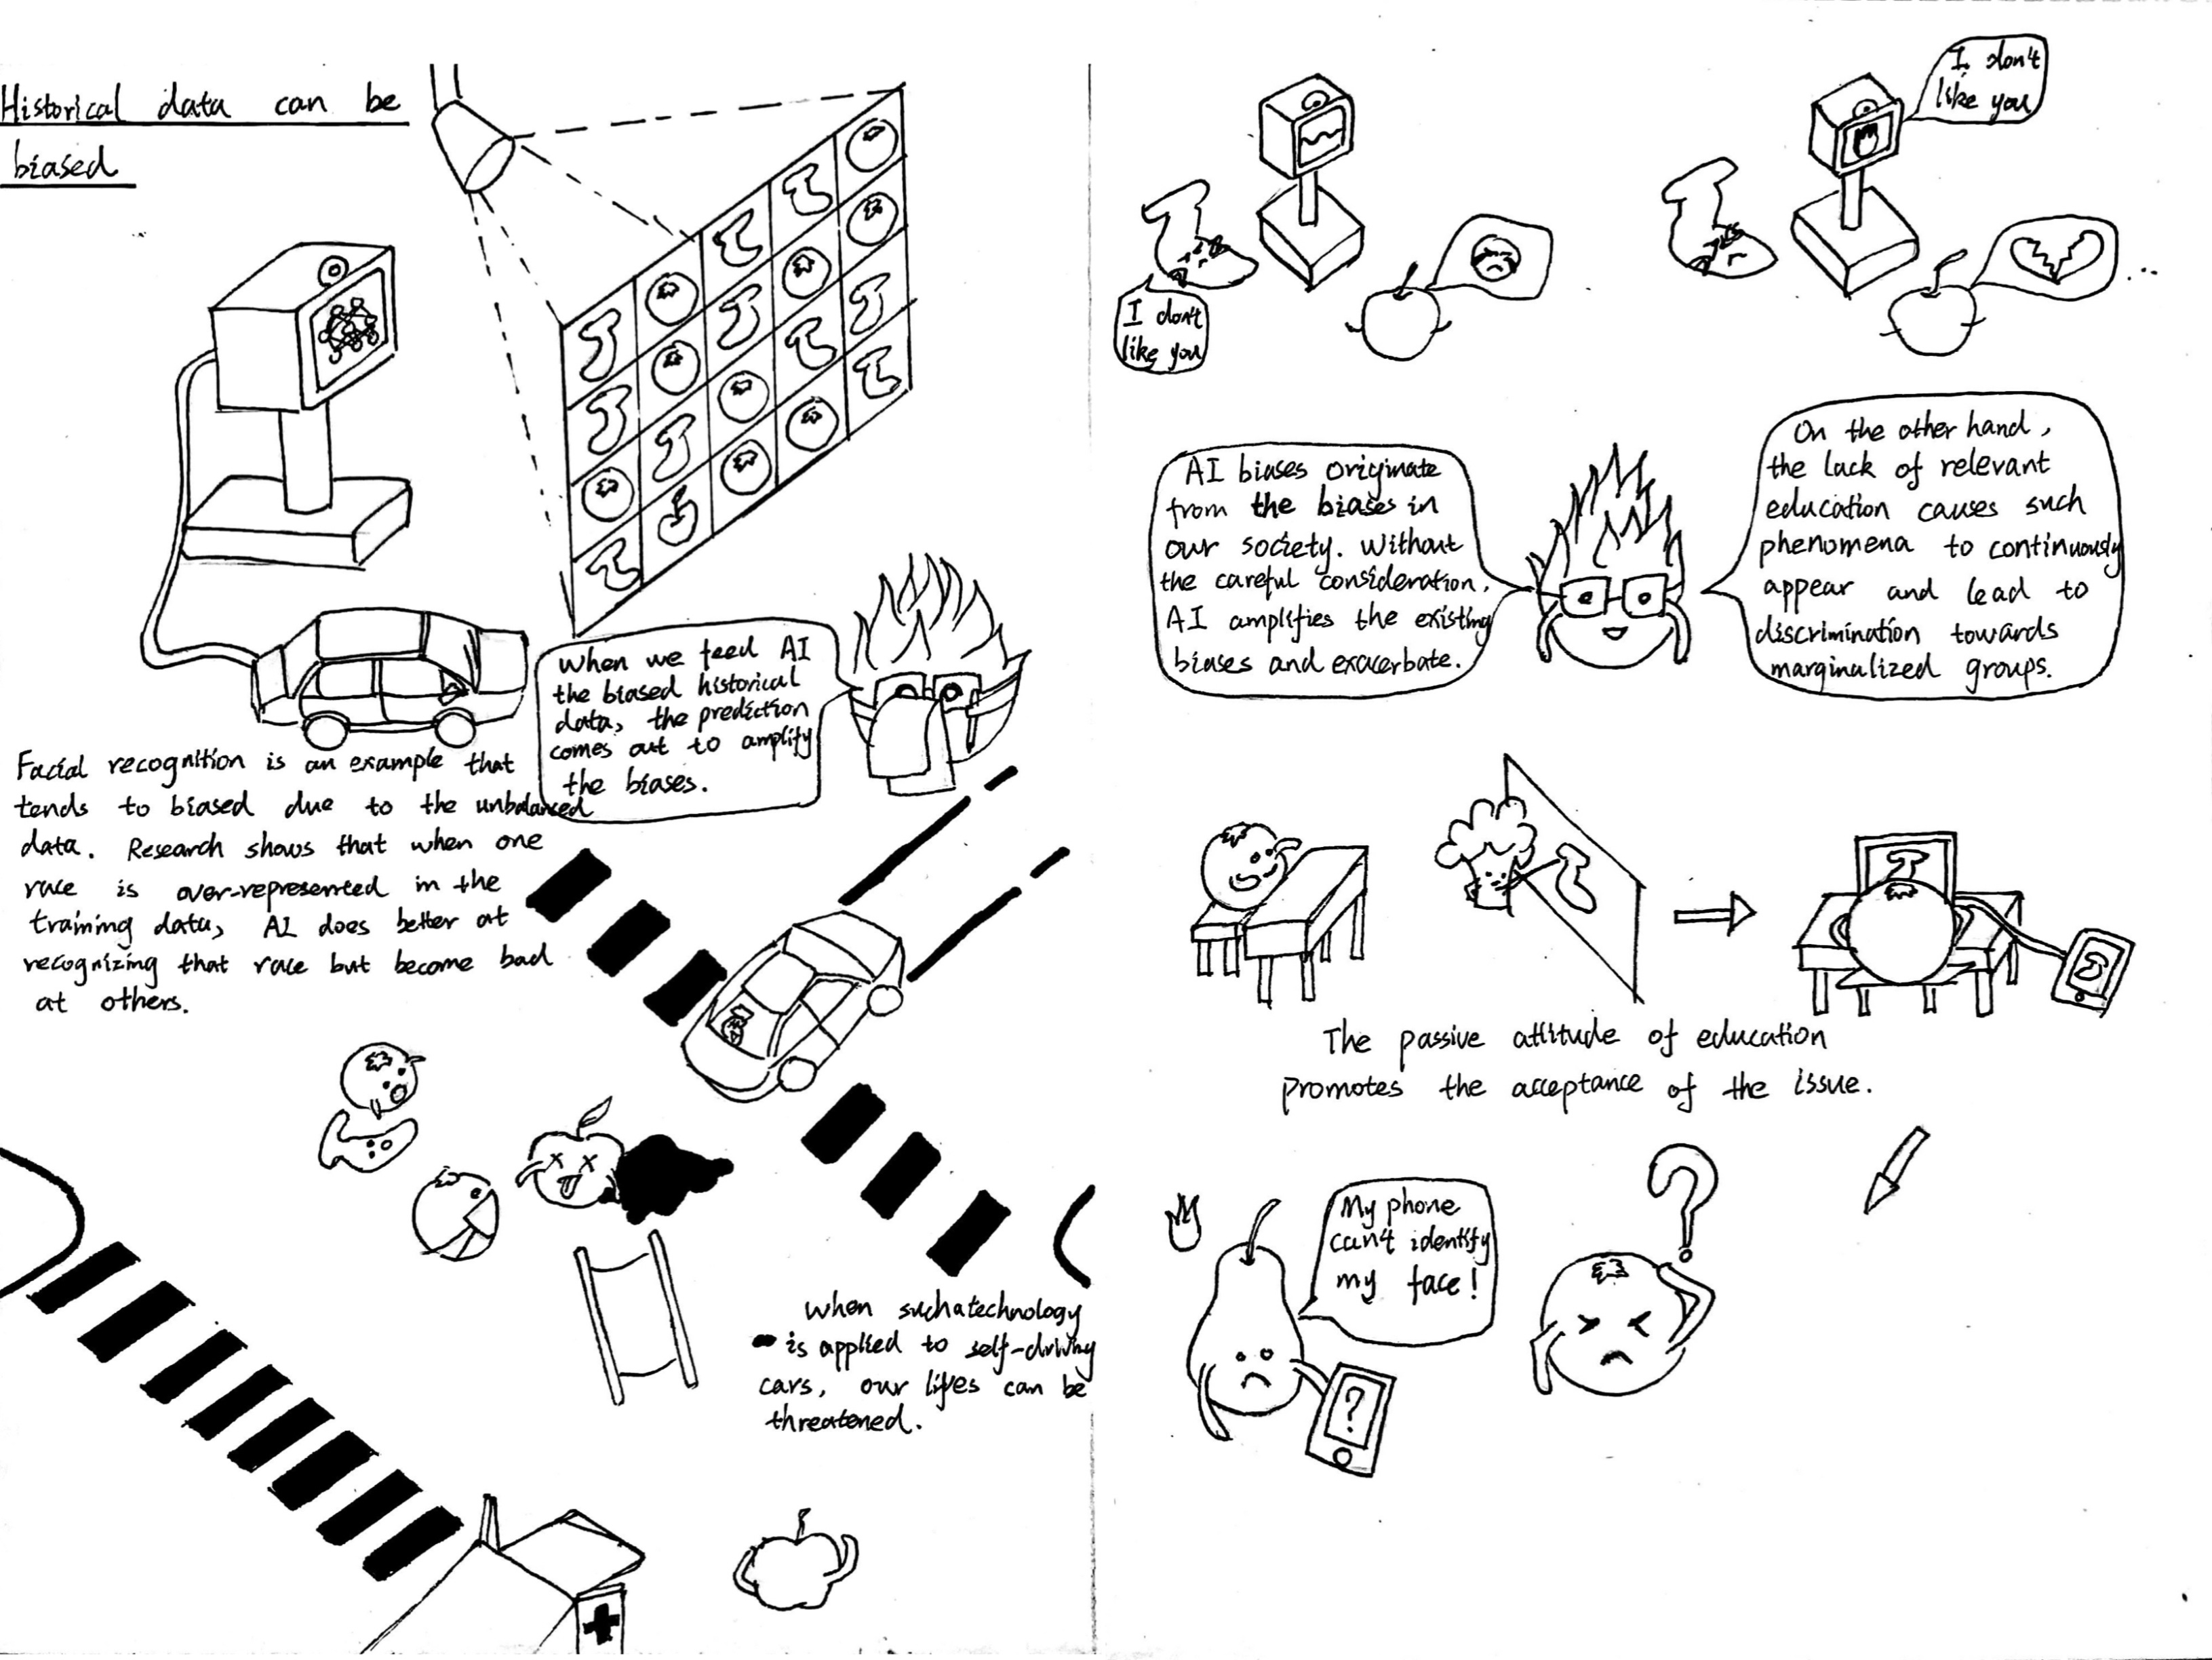 Historical data can be
biased
When we feed AI
the biased historical
data, the prediction
comes out to amplify
the biases.
Facial recognition is an example that
tends to biased due to the unbalanced
data. Research shows that when one
race is over-represented in the
training data, AI does better at
recognizing that race but become bad
at others.
When such a technology
is applied to self-driving
cars, our lifes can be
threatened.
I don't
like you
I don't
like you
AI biases originate
from the biases in
our society. Without
the careful consideration,
AI amplifies the existing
biases and exacerbate.
On the other hand,
the lack of relevant
education causes such
phenomena to continuously
appear and lead to
discrimination towards
marginalized groups.
The passive attitude of education
promotes the acceptance of the issue.
My phone
can't identify
my face!
?
?